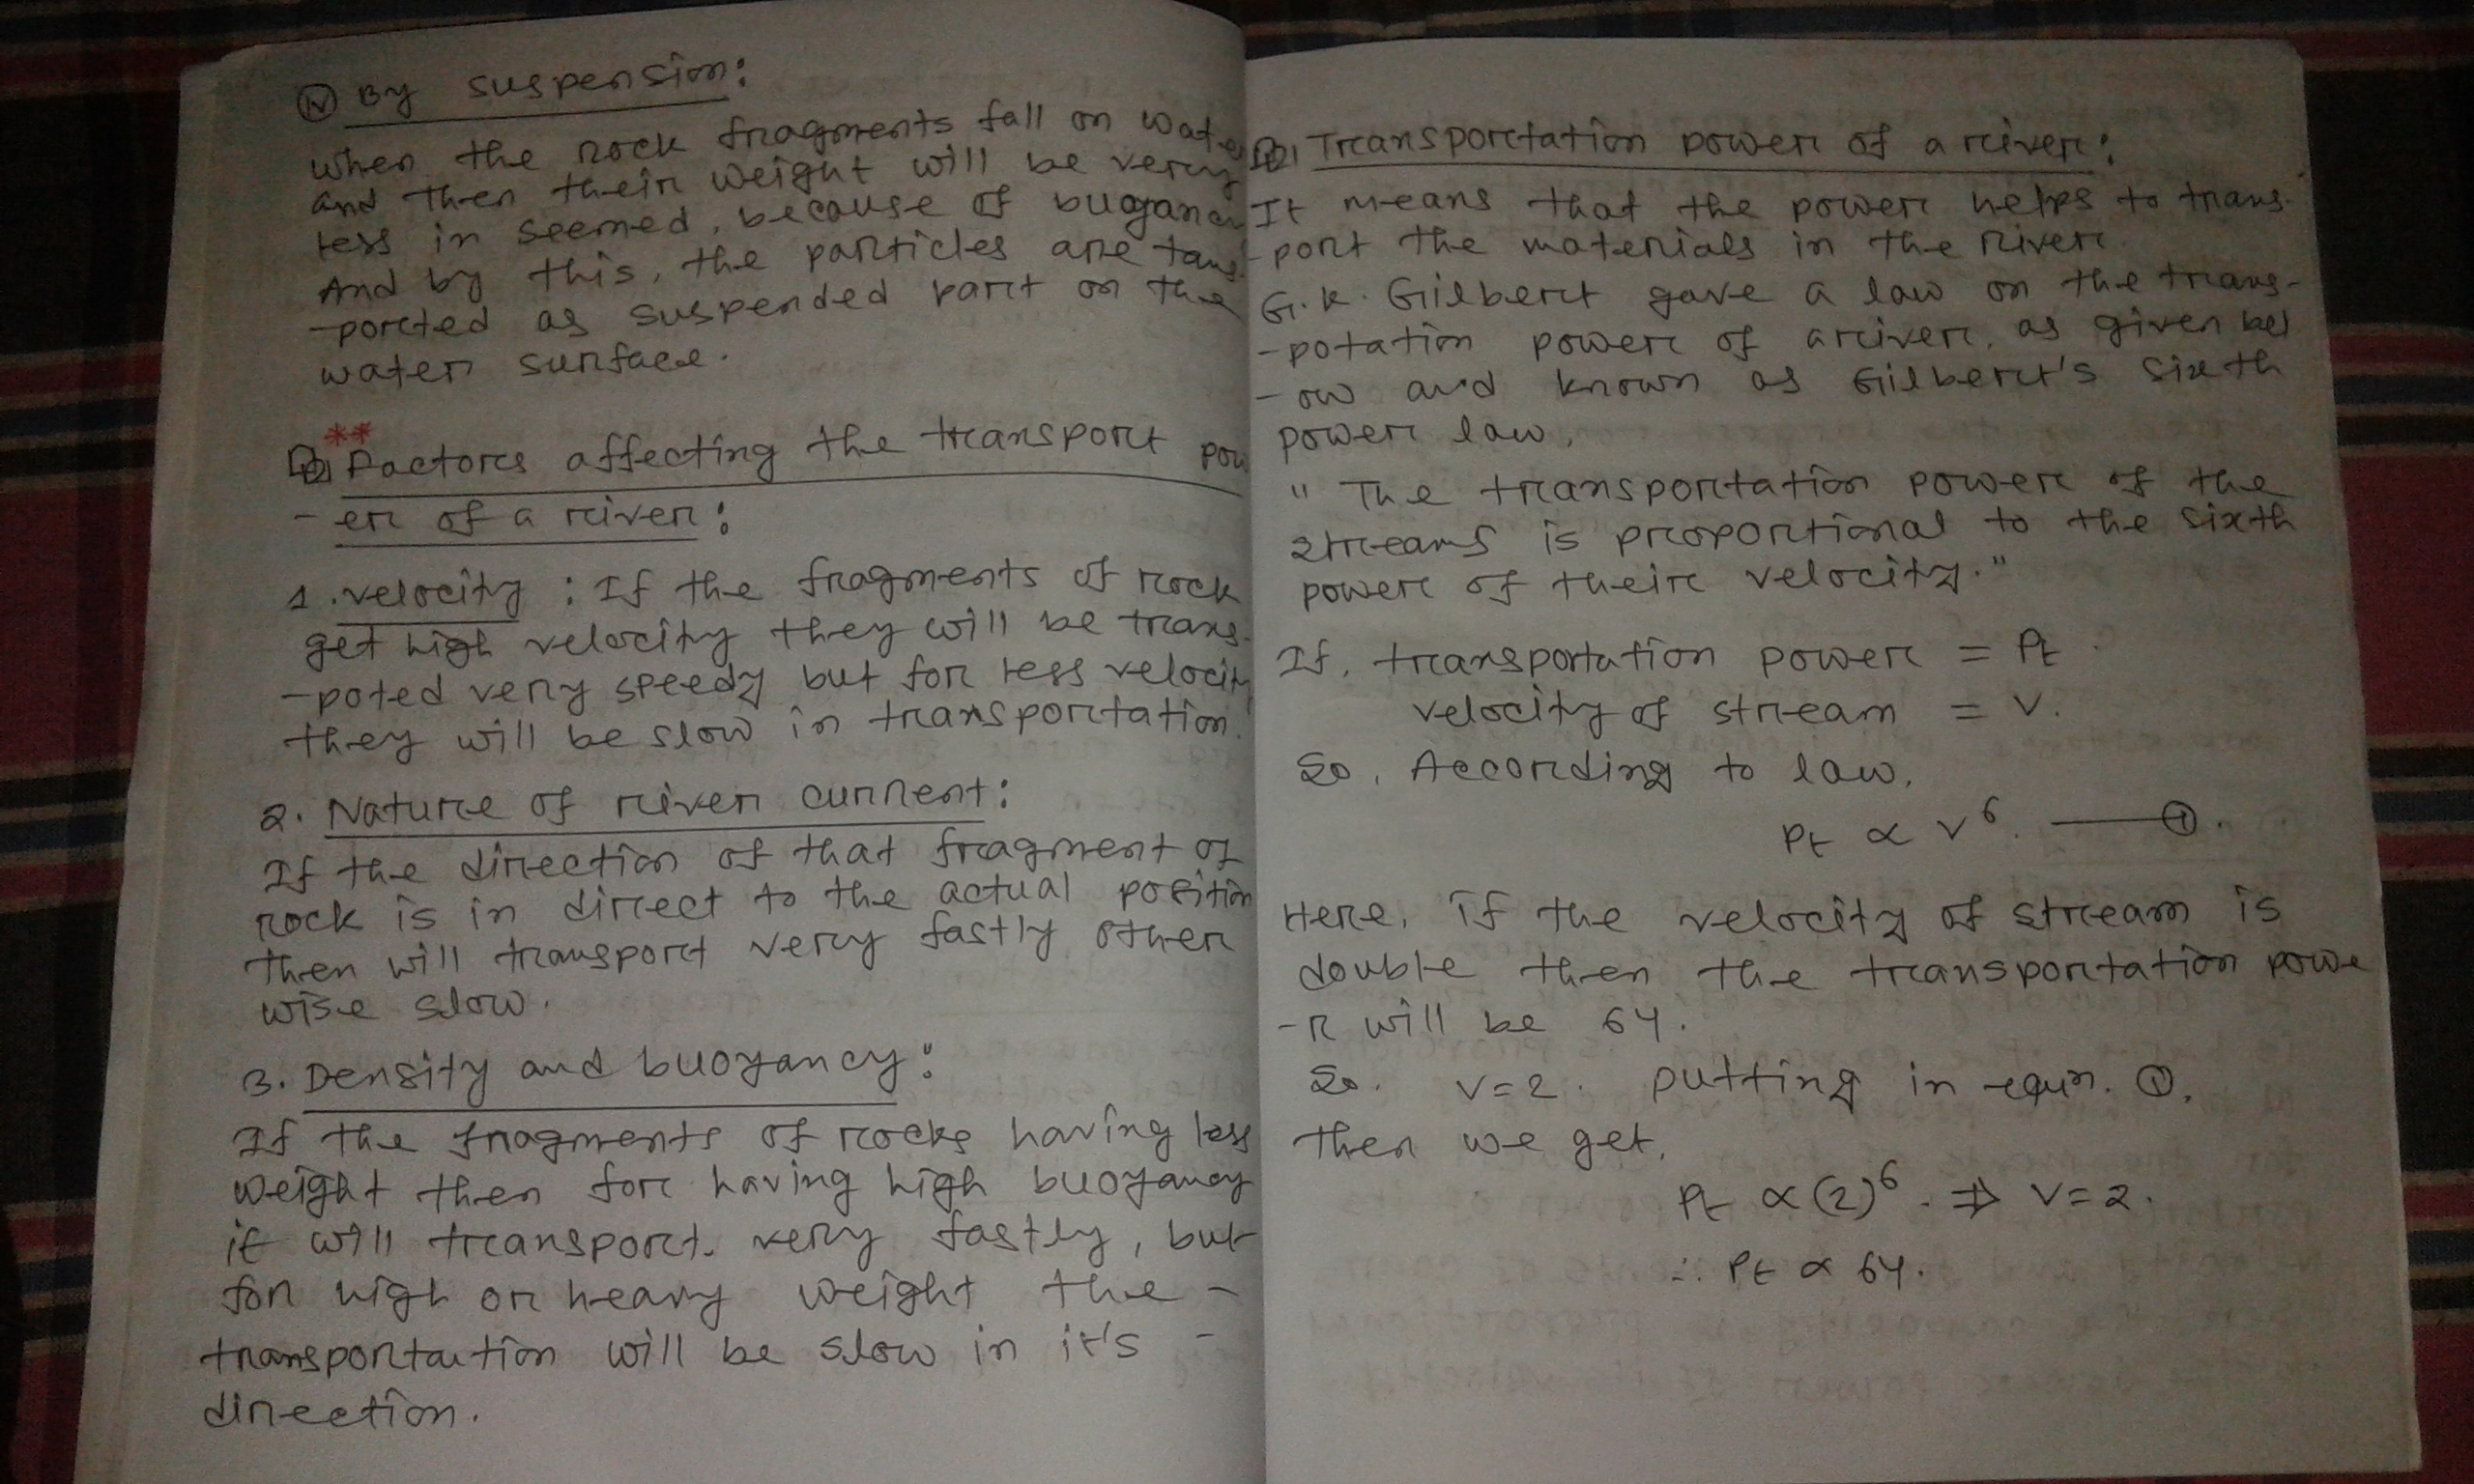 (iv) By suspension:
when the rock fragments fall on water
and then their weight will be very
less in seemed, because of buoyancy
And by this, the particles are tans-
-ported as suspended part on the
water surface.
**
Factors affecting the transport pow
-er of a river:
1. velocity : If the fragments of rock
get high velocity they will be trans-
-poted very speedy but for less velocity
they will be slow in transportation.
2. Nature of river current:
If the direction of that fragment of
rock is in direct to the actual position
then will transport very fastly other
wise slow.
3. Density and buoyancy:
If the fragments of rocks having less
weight then for having high buoyancy
it will transport. very fastly, but
for high or heavy weight the -
transportation will be slow in it's -
direction.
Transportation power of a river:
It means that the power helps to trans-
-port the materials in the river.
G.K. Gilbert gave a law on the trans-
-potation power of a river, as given bel
-ow and known as Gilbert's sixth
power law.
" The transportation power of the
streams is proportional to the sixth
power of their velocity."
If, transportation power = Pt.
velocity of stream = v.
So, According to law,
Pt ∝ v⁶. —— ①.
Here, if the velocity of stream is
double then the transportation powe
-r will be 64.
So. v=2. putting in eqn. ①,
then we get,
Pt ∝ (2)⁶. ⇒ v=2.
∴ Pt ∝ 64.